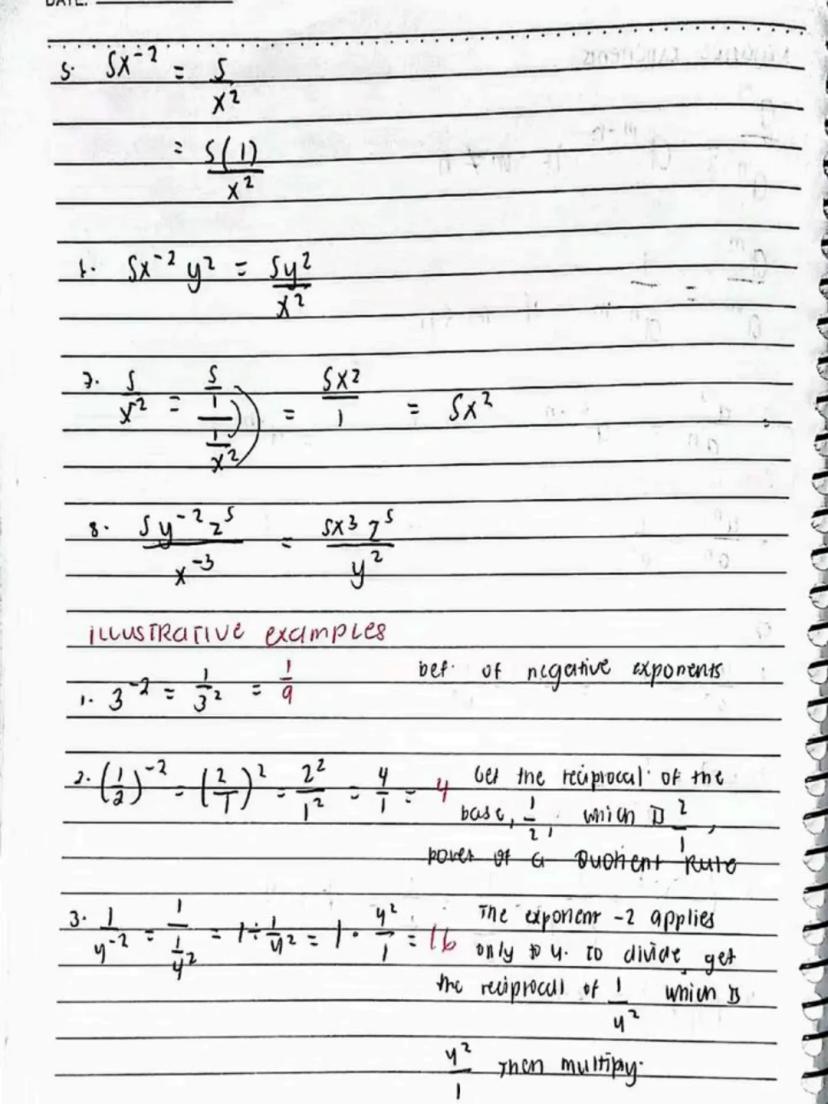 DATE:
5. 5x⁻² = 5/x²
= 5(1)/x²
6. 5x⁻² y² = 5y²/x²
7. 5/x² = (5/1)/(1/x²) = 5x²/1 = 5x²
8. 5y⁻²z⁵/x⁻³ = 5x³z⁵/y²
ILLUSTRATIVE examples
1. 3⁻² = 1/3² = 1/9 Def. of negative exponents
2. (1/2)⁻² = (2/1)² = 2²/1² = 4/1 = 4 Get the reciprocal of the
base, 1/2, which is 2/1,
power of a Quotient Rule
3. 1/4⁻² = 1/(1/4²) = 1 ÷ 1/4² = 1 · 4²/1 = 16 The exponent -2 applies
only to 4. To divide, get
the reciprocal of 1/4² which is
4²/1 Then multiply.